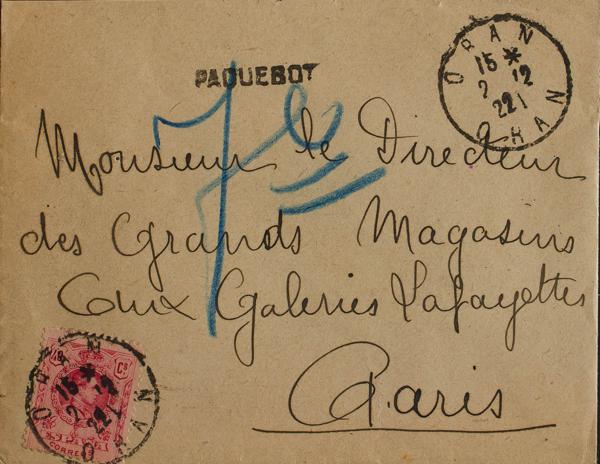 PAQUEBOT
ORAN
15 *
2 12
22
ORAN
7e
Monsieur le Directeur
des Grands Magasins
aux Galeries Lafayettes
Paris
10 Cs
CORREOS
ORAN
15 *
2 12
22
ORAN